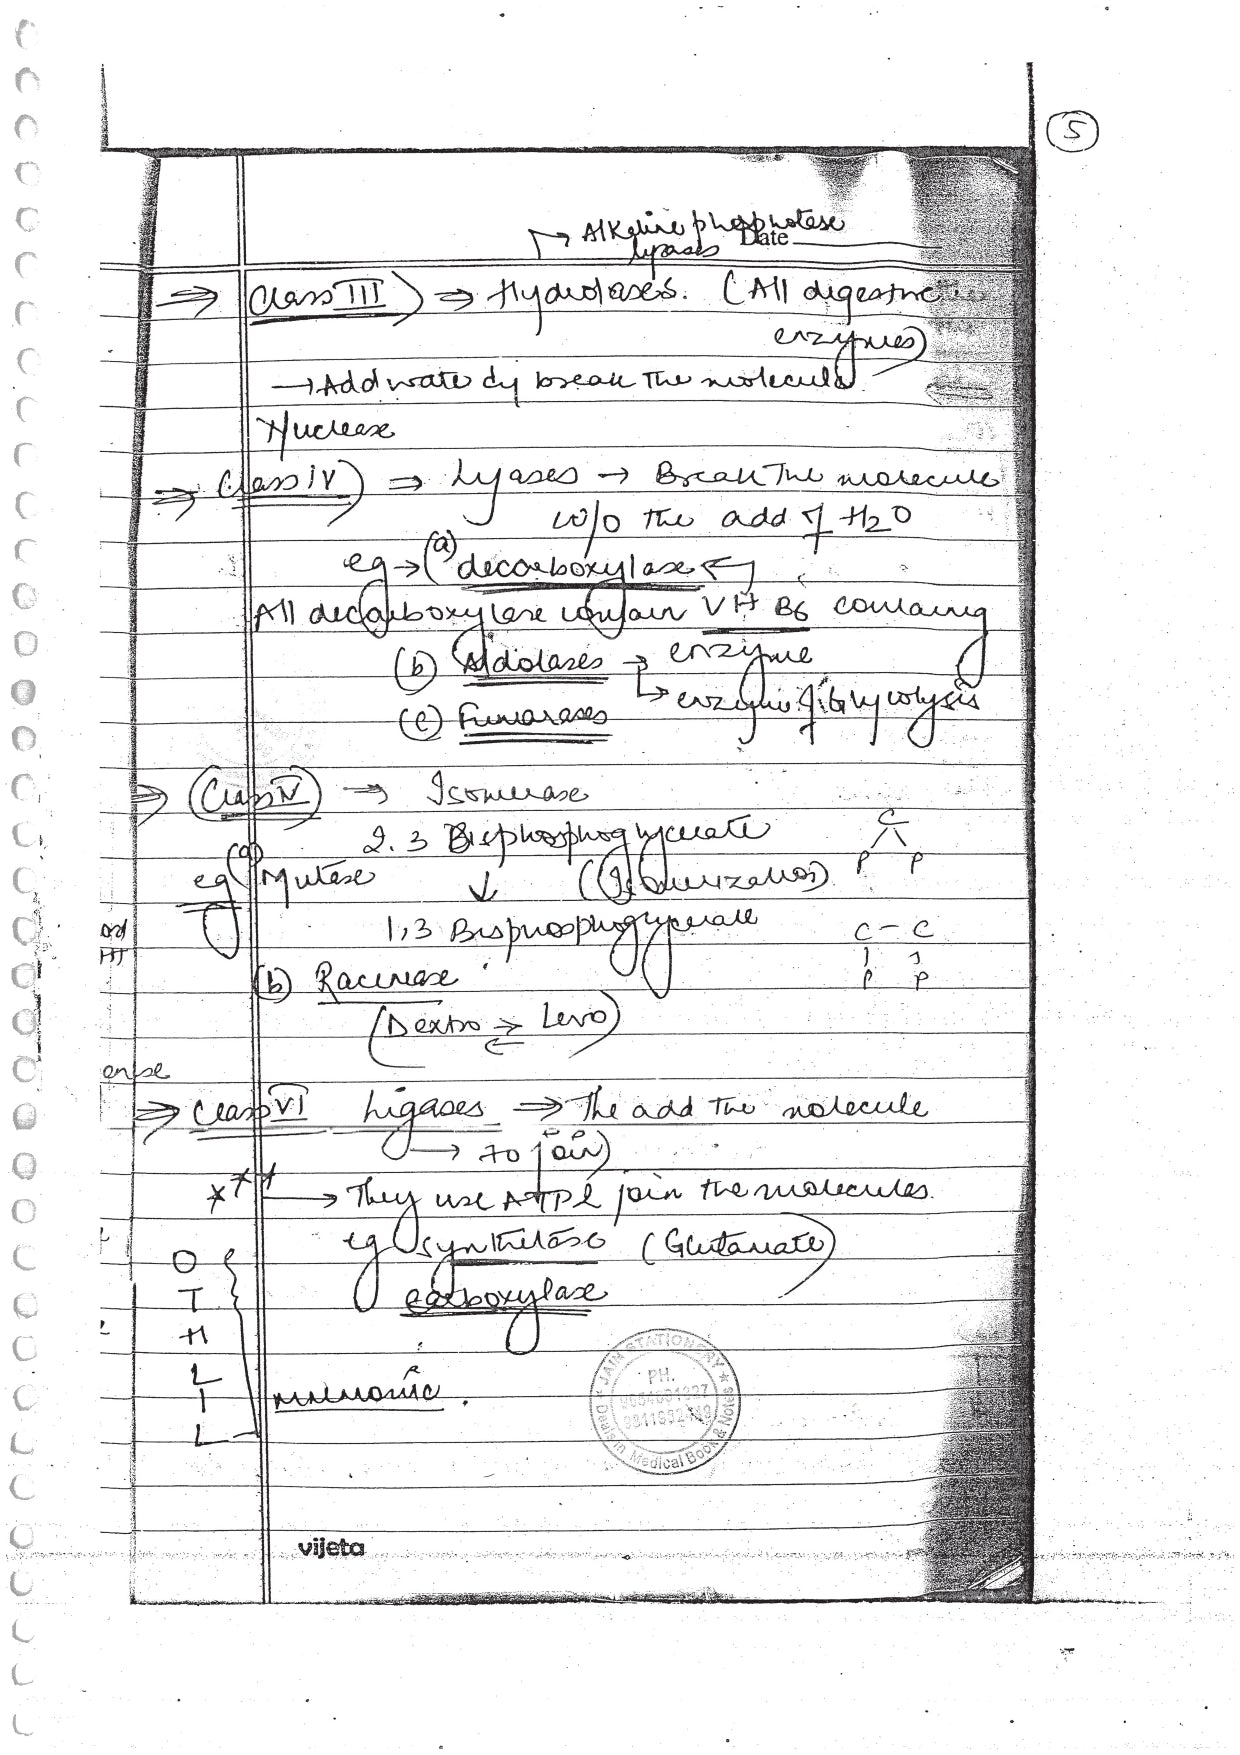 5
Alkaline phosphatase
lipases Date
⇒ Class III ⇒ Hydrolases. (All digestive
enzymes)
→ Add water & break the molecule
Nuclease
⇒ Class IV ⇒ Lyases → Break the molecule
w/o the add of H2O
eg → (a) decarboxylase
All decarboxylase contain Vit B6 containing
(b) Aldolases → enzyme
↳ enzyme of Glycolysis
(c) Fumarases
⇒ Class V → Isomerase
2.3 Bisphosphoglycerate
eg (a) Mutase ↓ (Isomerization)
C
P P
1,3 Bisphosphoglycerate
C - C
P P
(b) Racemase
(Dextro ⇌ Levo)
⇒ Class VI Ligases ⇒ The add the molecule
→ to join)
*** → They use ATP & join the molecules.
eg synthetase (Glutamate)
carboxylase
O
T
H
L
I
L
mnemonic.
JAIN STATIONERY
PH.
Deals in Medical Book & Notes
vijeta